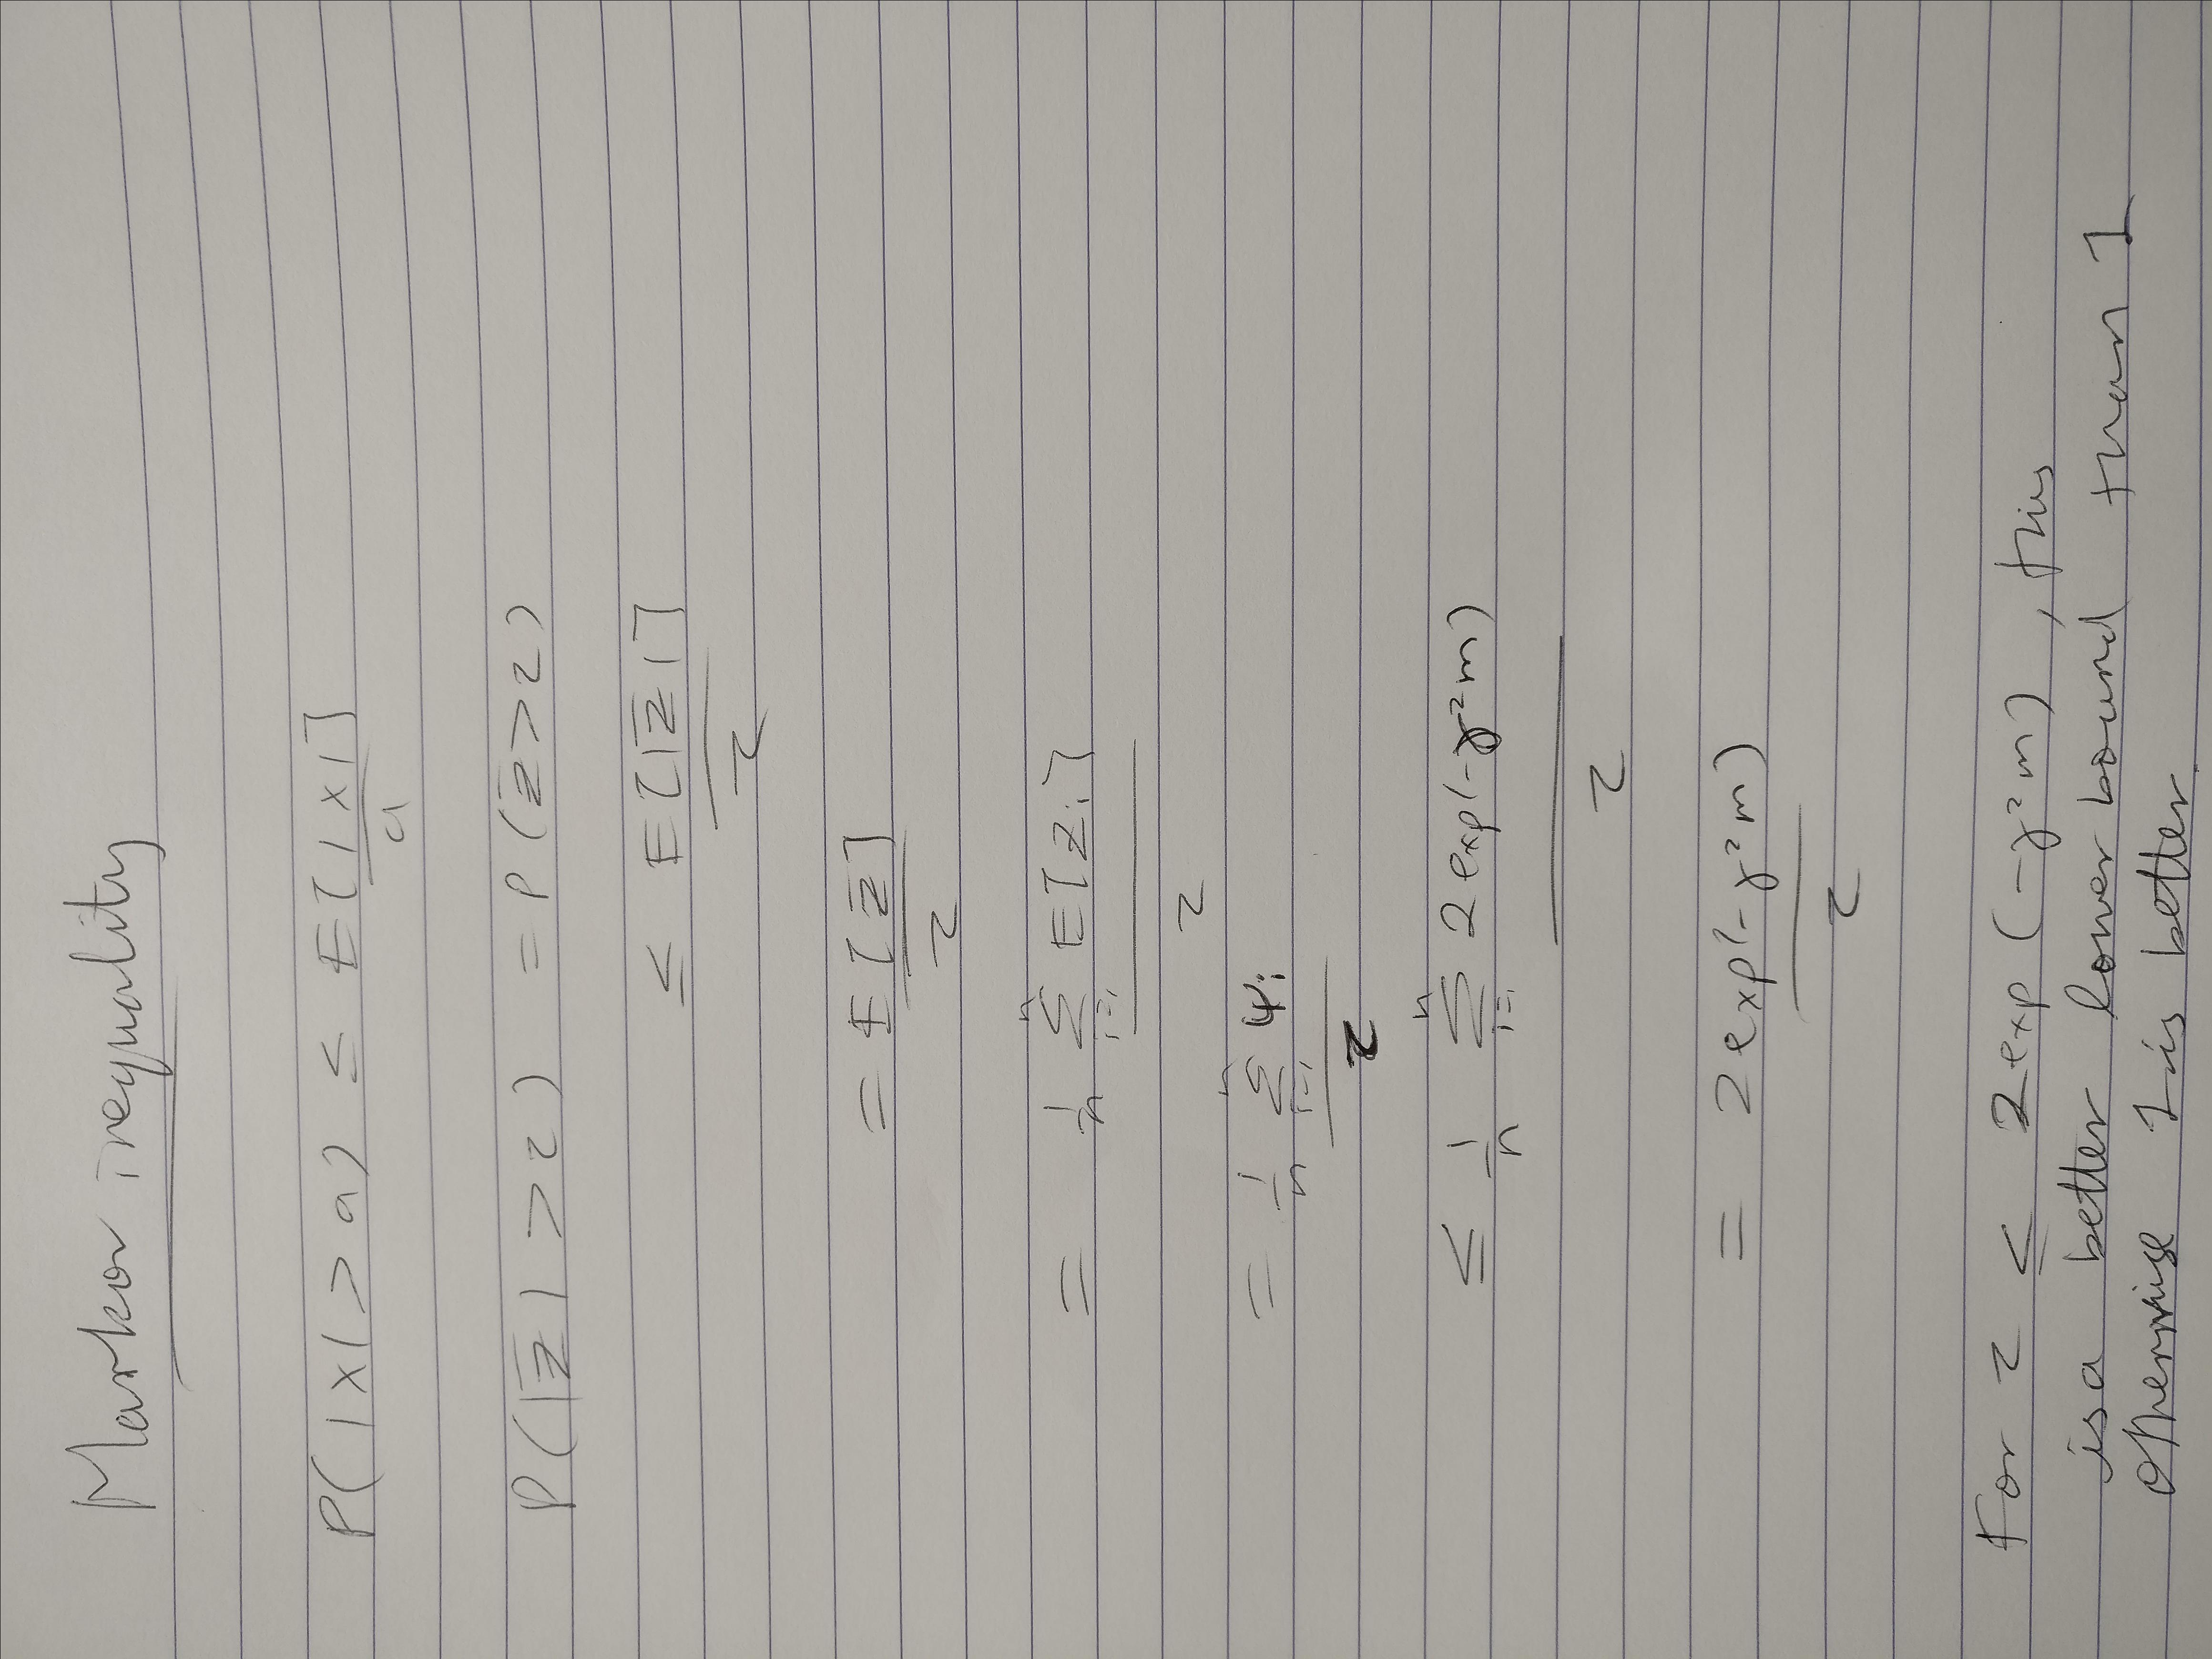 Markov inequality
P(|X| > a) ≤ E[|X|] / a
P(|Z̄| > τ) = P(Z̄ > τ)
≤ E[|Z̄|] / τ
= E[Z̄] / τ
= 1/n Σ_{i=1}^{n} E[Z_i] / τ
= 1/n Σ_{i=1}^{n} ψ_i / τ
≤ 1/n Σ_{i=1}^{n} 2exp(-γ²m) / τ
= 2exp(-γ²m) / τ
For τ ≤ 2exp(-γ²m), this
is a better lower bound than 1
otherwise 1 is better.